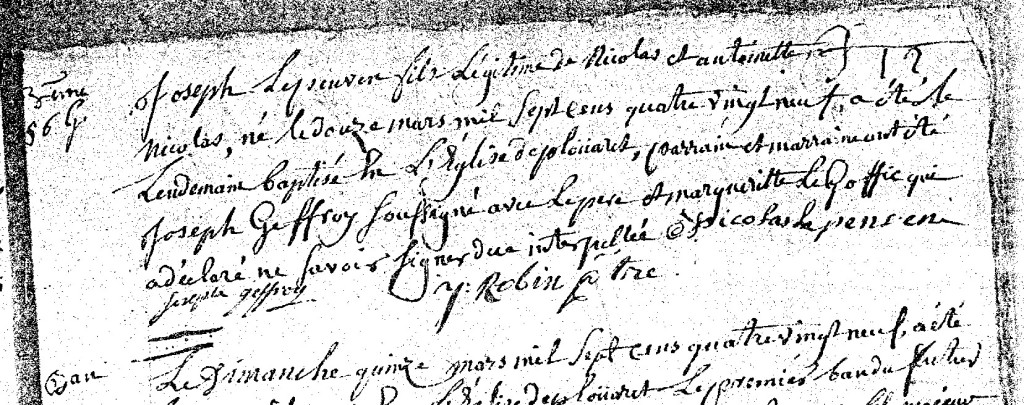 3eme 56 G
Joseph Lepenven fils Légitime de Nicolas et antoinette 12
Nicolas, né le douze mars mil sept cens quatre vingt neuf, a été le
Lendemain baptisé En L'Église deplouaret, parrain et marraine ont été
Joseph Geffroy soussigné avec le pere et margueritte Le Goffic qui
a déclaré ne savoir signer due interpellée Nicolas Le penven
joseph geffroy y. Robin ptre
Ban
Le Dimanche quinze mars mil sept cens quatre vingt neuf, a été
L'Église deplouaret Le premier ban du futur